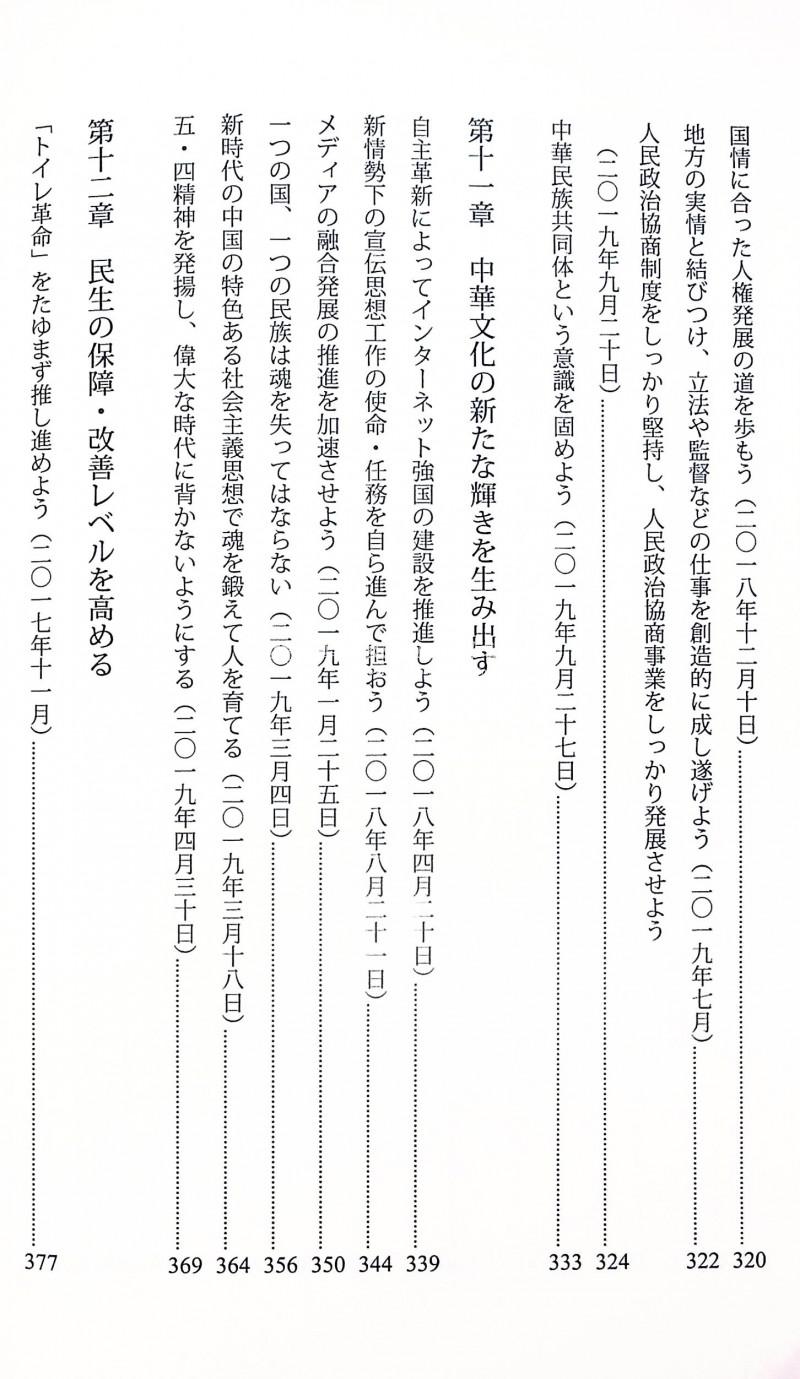 国情に合った人権発展の道を歩もう（二〇一八年十二月十日）……………320
地方の実情と結びつけ、立法や監督などの仕事を創造的に成し遂げよう（二〇一九年七月）……………322
人民政治協商制度をしっかり堅持し、人民政治協商事業をしっかり発展させよう
（二〇一九年九月二十日）……………324
中華民族共同体という意識を固めよう（二〇一九年九月二十七日）……………333
第十一章　中華文化の新たな輝きを生み出す
自主革新によってインターネット強国の建設を推進しよう（二〇一八年四月二十日）……………339
新情勢下の宣伝思想工作の使命・任務を自ら進んで担おう（二〇一八年八月二十一日）……………344
メディアの融合発展の推進を加速させよう（二〇一九年一月二十五日）……………350
一つの国、一つの民族は魂を失ってはならない（二〇一九年三月四日）……………356
新時代の中国の特色ある社会主義思想で魂を鍛えて人を育てる（二〇一九年三月十八日）……………364
五・四精神を発揚し、偉大な時代に背かないようにする（二〇一九年四月三十日）……………369
第十二章　民生の保障・改善レベルを高める
「トイレ革命」をたゆまず推し進めよう（二〇一七年十一月）……………377